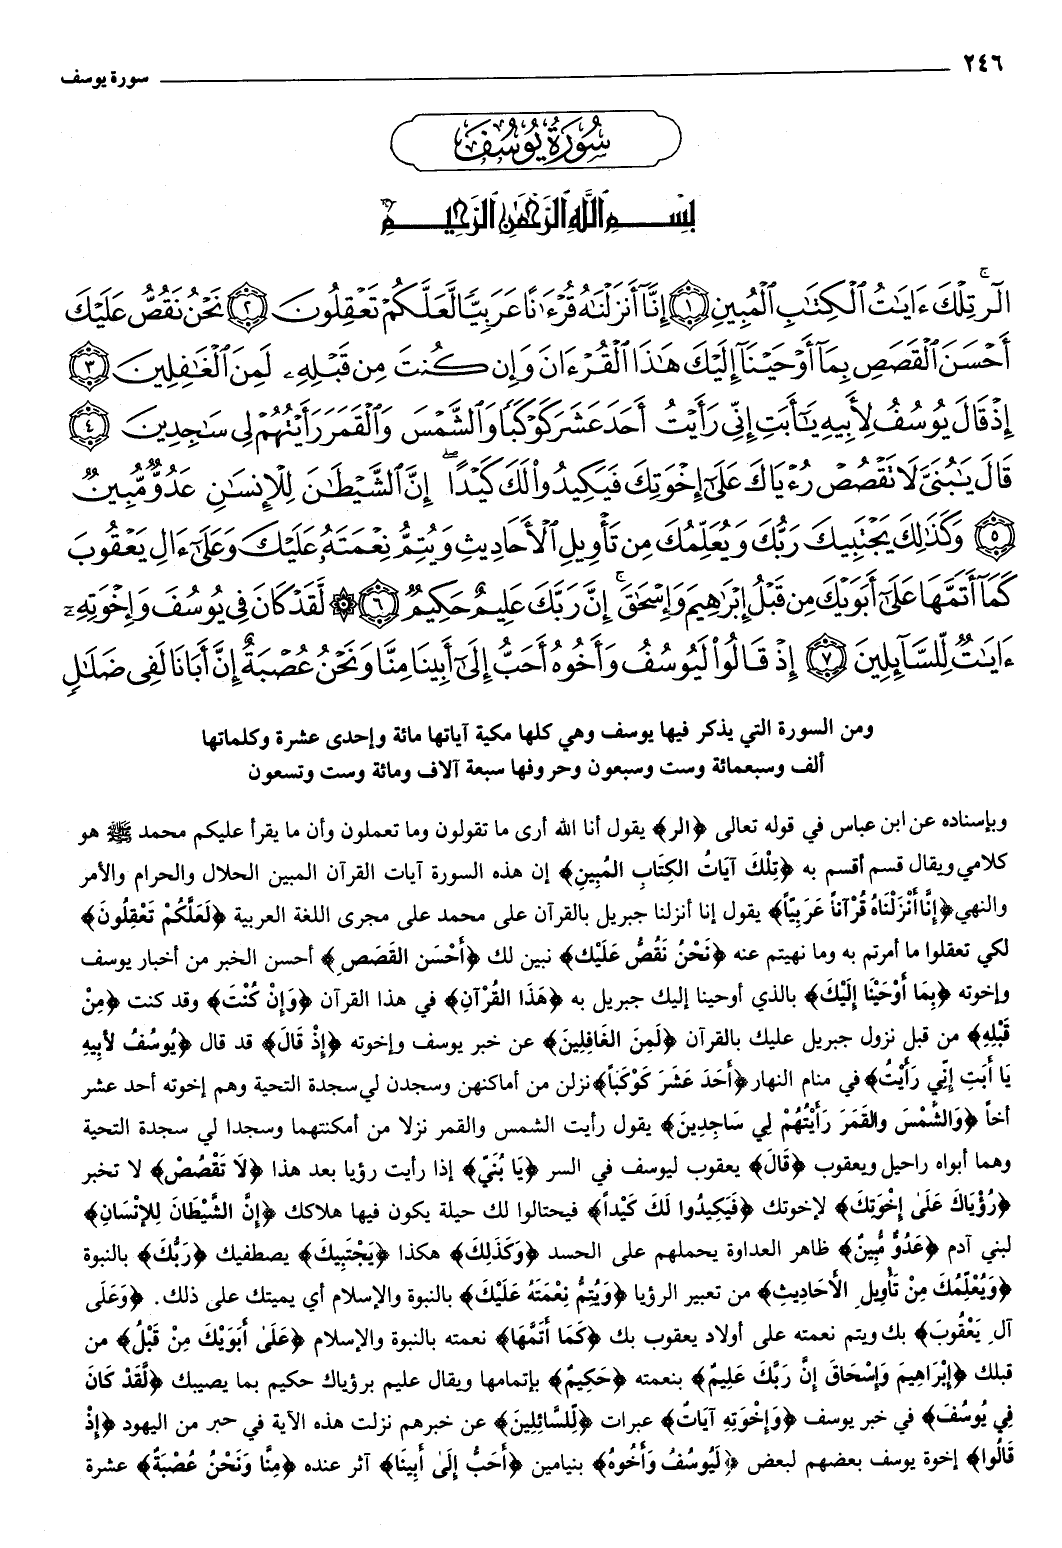 ٢٤٦
سورة يوسف
سُورَةُ يُوسُفَ
بِسْمِ اللَّهِ الرَّحْمَٰنِ الرَّحِيمِ
الٓرۚ تِلْكَ ءَايَٰتُ ٱلْكِتَٰبِ ٱلْمُبِينِ ﴿١﴾ إِنَّآ أَنزَلْنَٰهُ قُرْءَٰنًا عَرَبِيًّا لَّعَلَّكُمْ تَعْقِلُونَ ﴿٢﴾ نَحْنُ نَقُصُّ عَلَيْكَ
أَحْسَنَ ٱلْقَصَصِ بِمَآ أَوْحَيْنَآ إِلَيْكَ هَٰذَا ٱلْقُرْءَانَ وَإِن كُنتَ مِن قَبْلِهِۦ لَمِنَ ٱلْغَٰفِلِينَ ﴿٣﴾
إِذْ قَالَ يُوسُفُ لِأَبِيهِ يَٰٓأَبَتِ إِنِّي رَأَيْتُ أَحَدَ عَشَرَ كَوْكَبًا وَٱلشَّمْسَ وَٱلْقَمَرَ رَأَيْتُهُمْ لِي سَٰجِدِينَ ﴿٤﴾
قَالَ يَٰبُنَيَّ لَا تَقْصُصْ رُءْيَاكَ عَلَىٰٓ إِخْوَتِكَ فَيَكِيدُوا۟ لَكَ كَيْدًاۖ إِنَّ ٱلشَّيْطَٰنَ لِلْإِنسَٰنِ عَدُوٌّ مُّبِينٌ
﴿٥﴾ وَكَذَٰلِكَ يَجْتَبِيكَ رَبُّكَ وَيُعَلِّمُكَ مِن تَأْوِيلِ ٱلْأَحَادِيثِ وَيُتِمُّ نِعْمَتَهُۥ عَلَيْكَ وَعَلَىٰٓ ءَالِ يَعْقُوبَ
كَمَآ أَتَمَّهَا عَلَىٰٓ أَبَوَيْكَ مِن قَبْلُ إِبْرَٰهِيمَ وَإِسْحَٰقَۚ إِنَّ رَبَّكَ عَلِيمٌ حَكِيمٌ ﴿٦﴾ ۞ لَّقَدْ كَانَ فِي يُوسُفَ وَإِخْوَتِهِۦٓ
ءَايَٰتٌ لِّلسَّآئِلِينَ ﴿٧﴾ إِذْ قَالُوا۟ لَيُوسُفُ وَأَخُوهُ أَحَبُّ إِلَىٰٓ أَبِينَا مِنَّا وَنَحْنُ عُصْبَةٌ إِنَّ أَبَانَا لَفِي ضَلَٰلٍ
ومن السورة التي يذكر فيها يوسف وهي كلها مكية آياتها مائة وإحدى عشرة وكلماتها
ألف وسبعمائة وست وسبعون وحروفها سبعة آلاف ومائة وست وتسعون
وبإسناده عن ابن عباس في قوله تعالى ﴿الر﴾ يقول أنا الله أرى ما تقولون وما تعملون وأن ما يقرأ عليكم محمد ﷺ هو
كلامي ويقال قسم أقسم به ﴿تِلْكَ آيَاتُ الكِتَابِ المُبِينِ﴾ إن هذه السورة آيات القرآن المبين الحلال والحرام والأمر
والنهي ﴿إِنَّا أَنْزَلْنَاهُ قُرْآناً عَرَبِيّاً﴾ يقول إنا أنزلنا جبريل بالقرآن على محمد على مجرى اللغة العربية ﴿لَعَلَّكُمْ تَعْقِلُونَ﴾
لكي تعقلوا ما أمرتم به وما نهيتم عنه ﴿نَحْنُ نَقُصُّ عَلَيْكَ﴾ نبين لك ﴿أَحْسَنَ القَصَصِ﴾ أحسن الخبر من أخبار يوسف
وإخوته ﴿بِمَا أَوْحَيْنَا إِلَيْكَ﴾ بالذي أوحينا إليك جبريل به ﴿هَذَا القُرْآنِ﴾ في هذا القرآن ﴿وَإِنْ كُنْتَ﴾ وقد كنت ﴿مِنْ
قَبْلِهِ﴾ من قبل نزول جبريل عليك بالقرآن ﴿لَمِنَ الغَافِلِينَ﴾ عن خبر يوسف وإخوته ﴿إِذْ قَالَ﴾ قد قال ﴿يُوسُفُ لأبِيهِ
يَا أَبَتِ إِنِّي رَأَيْتُ﴾ في منام النهار ﴿أَحَدَ عَشَرَ كَوْكَبَاً﴾ نزلن من أماكنهن وسجدن لي سجدة التحية وهم إخوته أحد عشر
أخاً ﴿وَالشَّمْسَ والقَمَرَ رَأَيْتُهُمْ لِي سَاجِدِينَ﴾ يقول رأيت الشمس والقمر نزلا من أمكنتهما وسجدا لي سجدة التحية
وهما أبواه راحيل ويعقوب ﴿قَالَ﴾ يعقوب ليوسف في السر ﴿يَا بُنَيَّ﴾ إذا رأيت رؤيا بعد هذا ﴿لَا تَقْصُصْ﴾ لا تخبر
﴿رُؤْيَاكَ عَلَىٰ إِخْوَتِكَ﴾ لإخوتك ﴿فَيَكِيدُوا لَكَ كَيْداً﴾ فيحتالوا لك حيلة يكون فيها هلاكك ﴿إِنَّ الشَّيْطَانَ لِلإِنْسَانِ﴾
لبني آدم ﴿عَدُوٌّ مُّبِينٌ﴾ ظاهر العداوة يحملهم على الحسد ﴿وَكَذَلِكَ﴾ هكذا ﴿يَجْتَبِيكَ﴾ يصطفيك ﴿رَبُّكَ﴾ بالنبوة
﴿وَيُعَلِّمُكَ مِنْ تَأْوِيلِ الأَحَادِيثِ﴾ من تعبير الرؤيا ﴿وَيُتِمُّ نِعْمَتَهُ عَلَيْكَ﴾ بالنبوة والإسلام أي يميتك على ذلك. ﴿وَعَلَى
آلِ يَعْقُوبَ﴾ بك ويتم نعمته على أولاد يعقوب بك ﴿كَمَا أَتَمَّهَا﴾ نعمته بالنبوة والإسلام ﴿عَلَىٰ أَبَوَيْكَ مِنْ قَبْلُ﴾ من
قبلك ﴿إِبْرَاهِيمَ وَإِسْحَاقَ إِنَّ رَبَّكَ عَلِيمٌ﴾ بنعمته ﴿حَكِيمٌ﴾ بإتمامها ويقال عليم برؤياك حكيم بما يصيبك ﴿لَّقَدْ كَانَ
فِي يُوسُفَ﴾ في خبر يوسف ﴿وَإِخْوَتِهِ آيَاتٌ﴾ عبرات ﴿لِّلسَّائِلِينَ﴾ عن خبرهم نزلت هذه الآية في حبر من اليهود ﴿إِذْ
قَالُوا﴾ إخوة يوسف بعضهم لبعض ﴿لَيُوسُفُ وَأَخُوهُ﴾ بنيامين ﴿أَحَبُّ إِلَىٰ أَبِينَا﴾ آثر عنده ﴿مِنَّا وَنَحْنُ عُصْبَةٌ﴾ عشرة